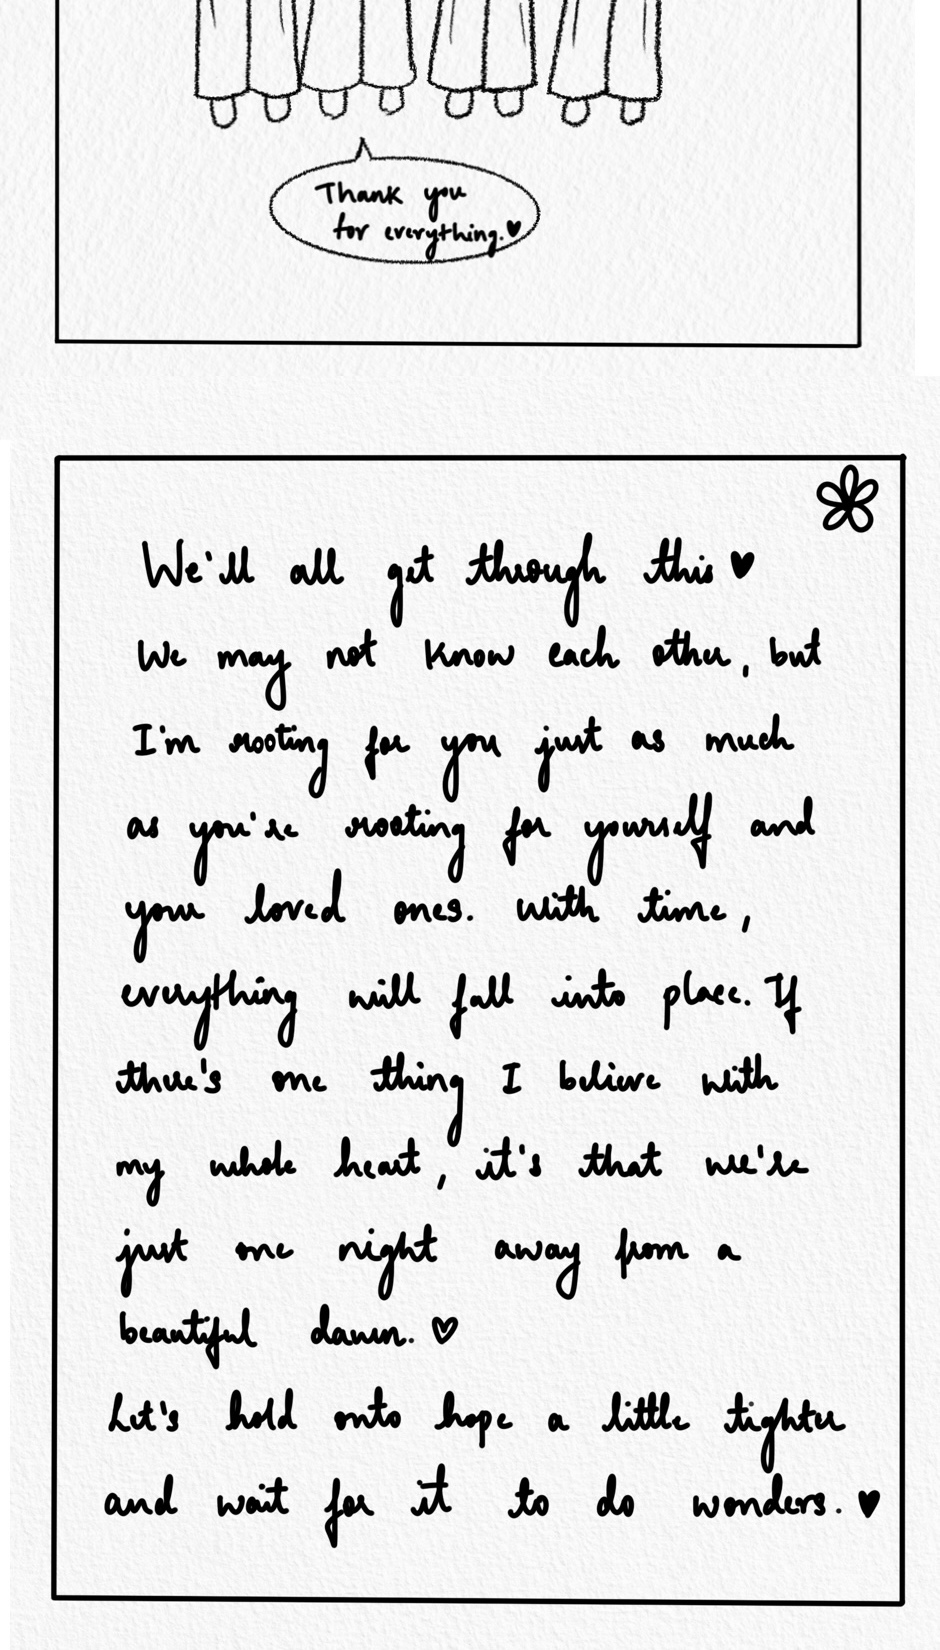 Thank you
for everything.♥
We'll all get through this ♥
We may not know each other, but
I'm rooting for you just as much
as you're rooting for yourself and
your loved ones. With time,
everything will fall into place. If
there's one thing I believe with
my whole heart, it's that we're
just one night away from a
beautiful dawn. ♡
Let's hold onto hope a little tighter
and wait for it to do wonders. ♥